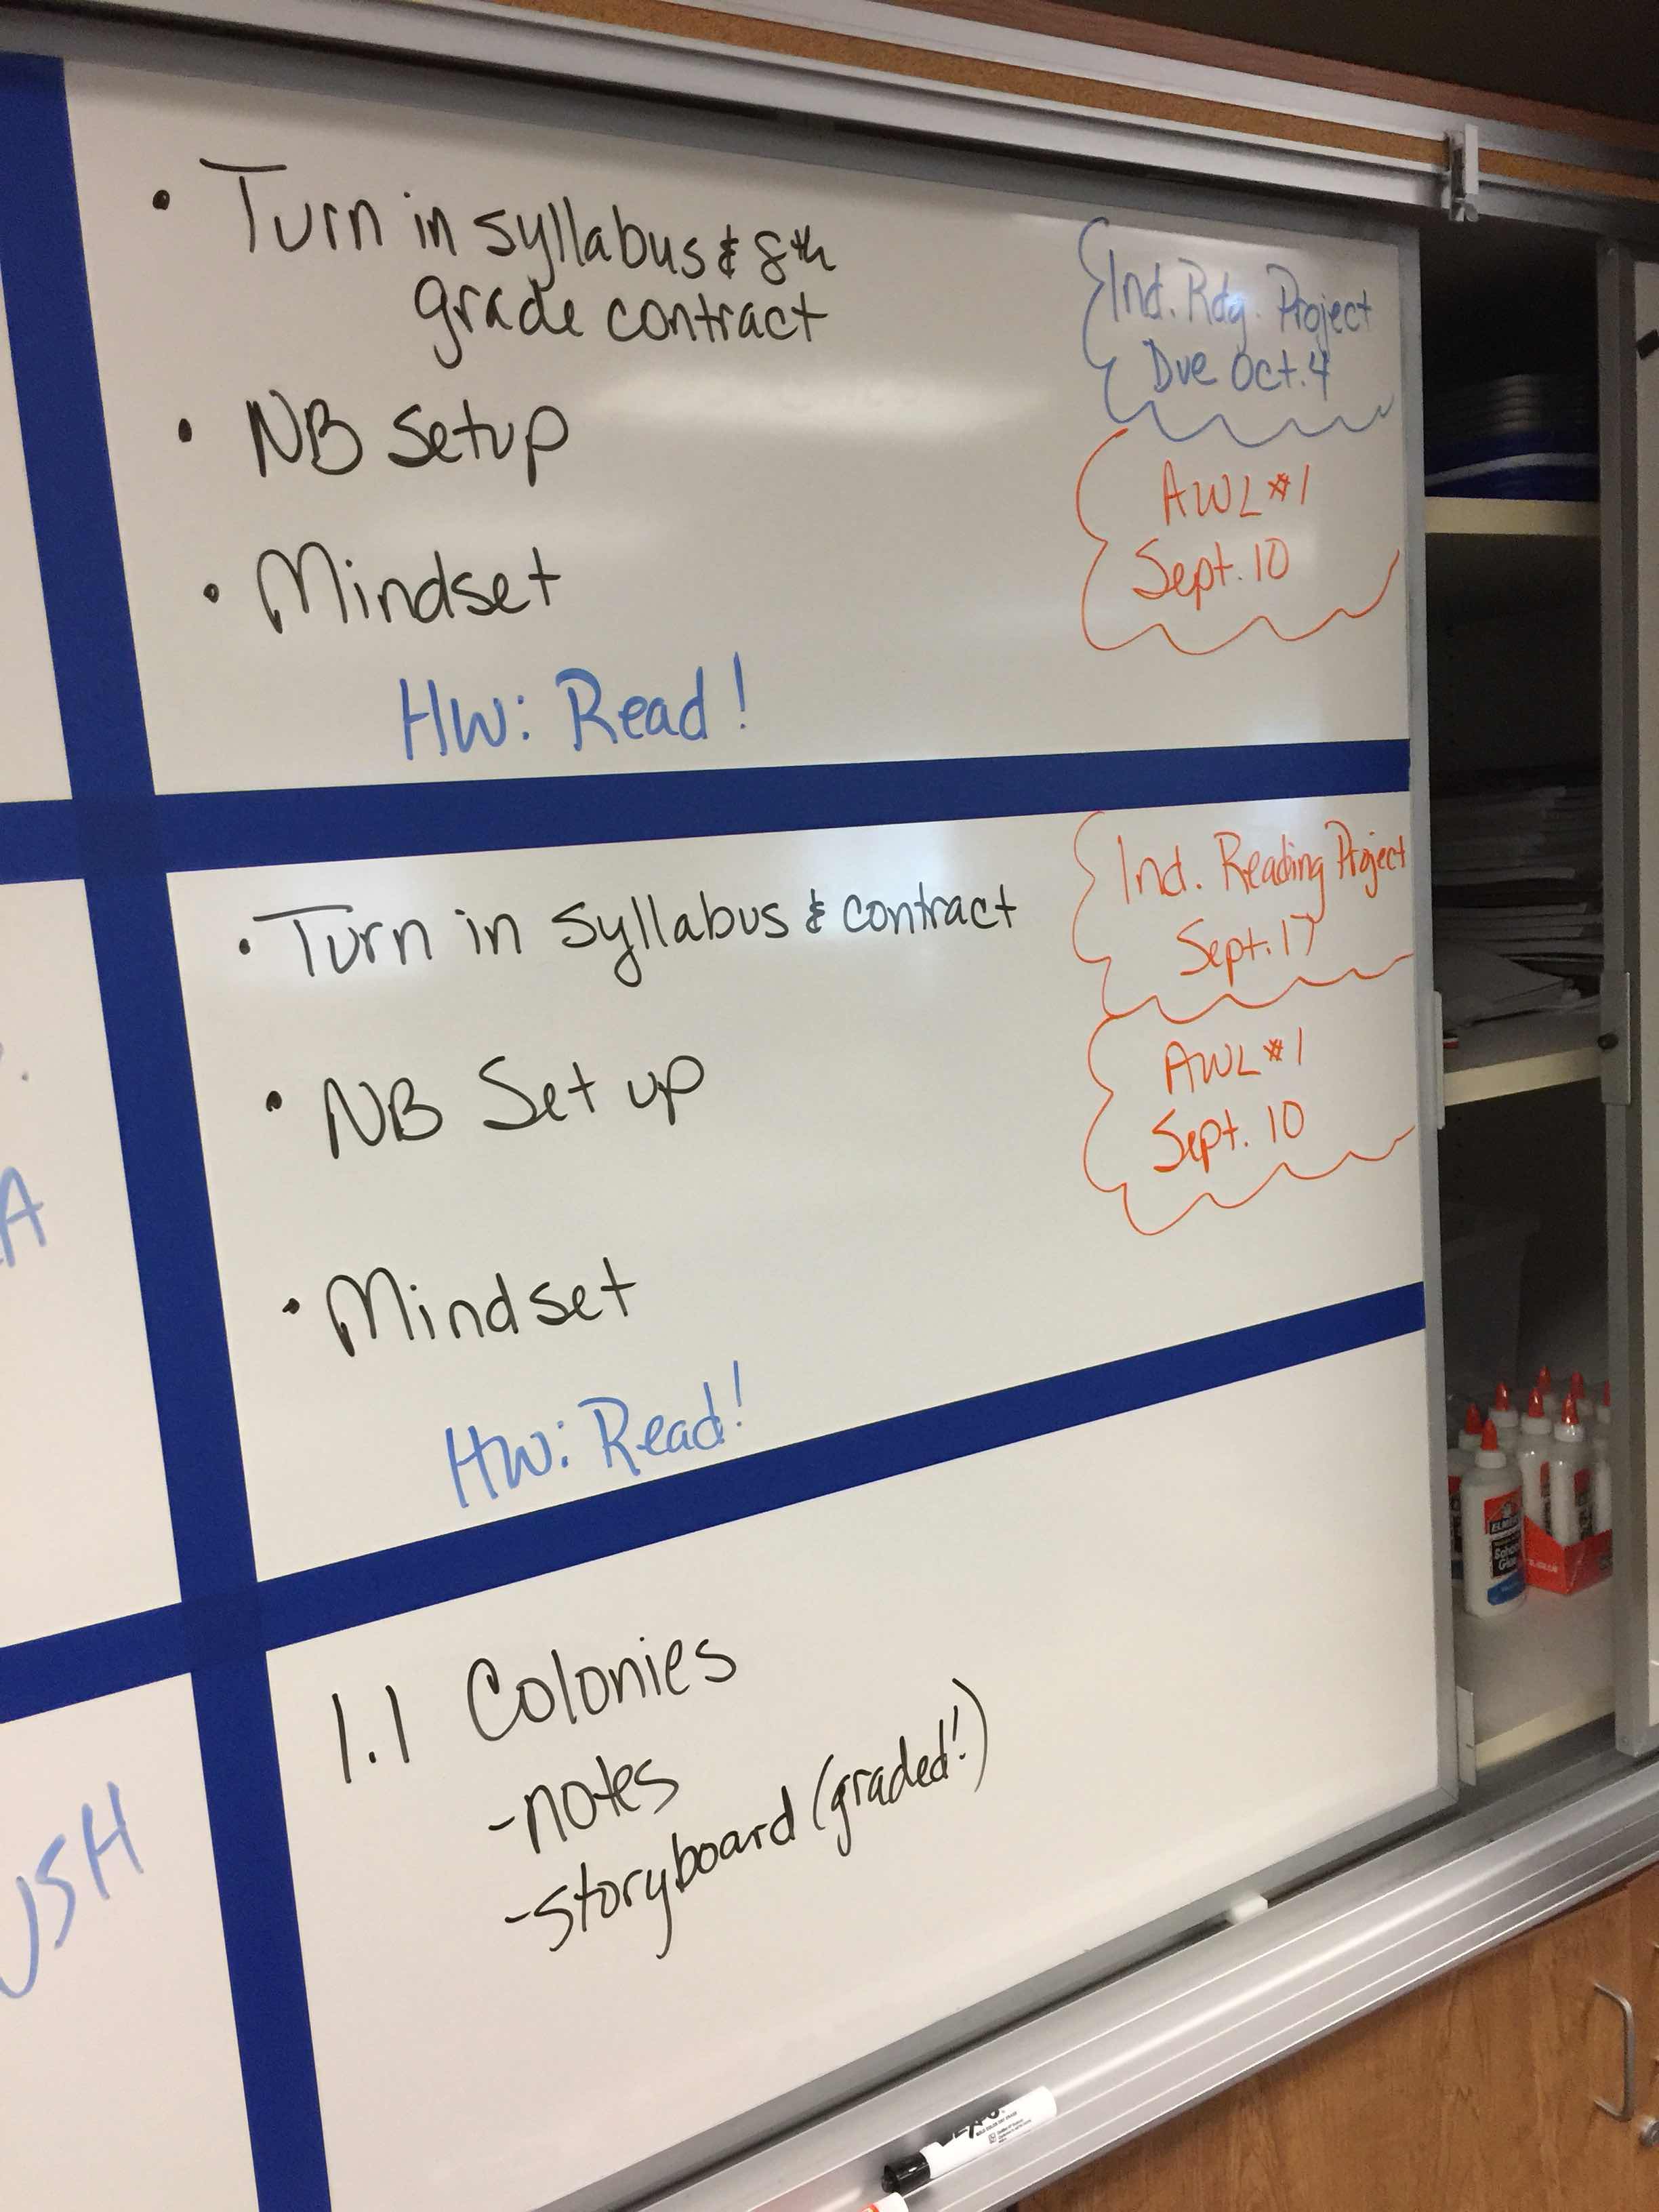 • Turn in syllabus & 8th
grade contract
• NB Setup
• Mindset
HW: Read!
Ind. Rdg. Project
Due Oct. 4
AWL #1
Sept. 10
• Turn in syllabus & contract
• NB Set up
• Mindset
HW: Read!
Ind. Reading Project
Sept. 17
AWL #1
Sept. 10
A
USH
1.1 Colonies
-notes
-storyboard (graded!)
ELMER'S
School
Glue
EXPO